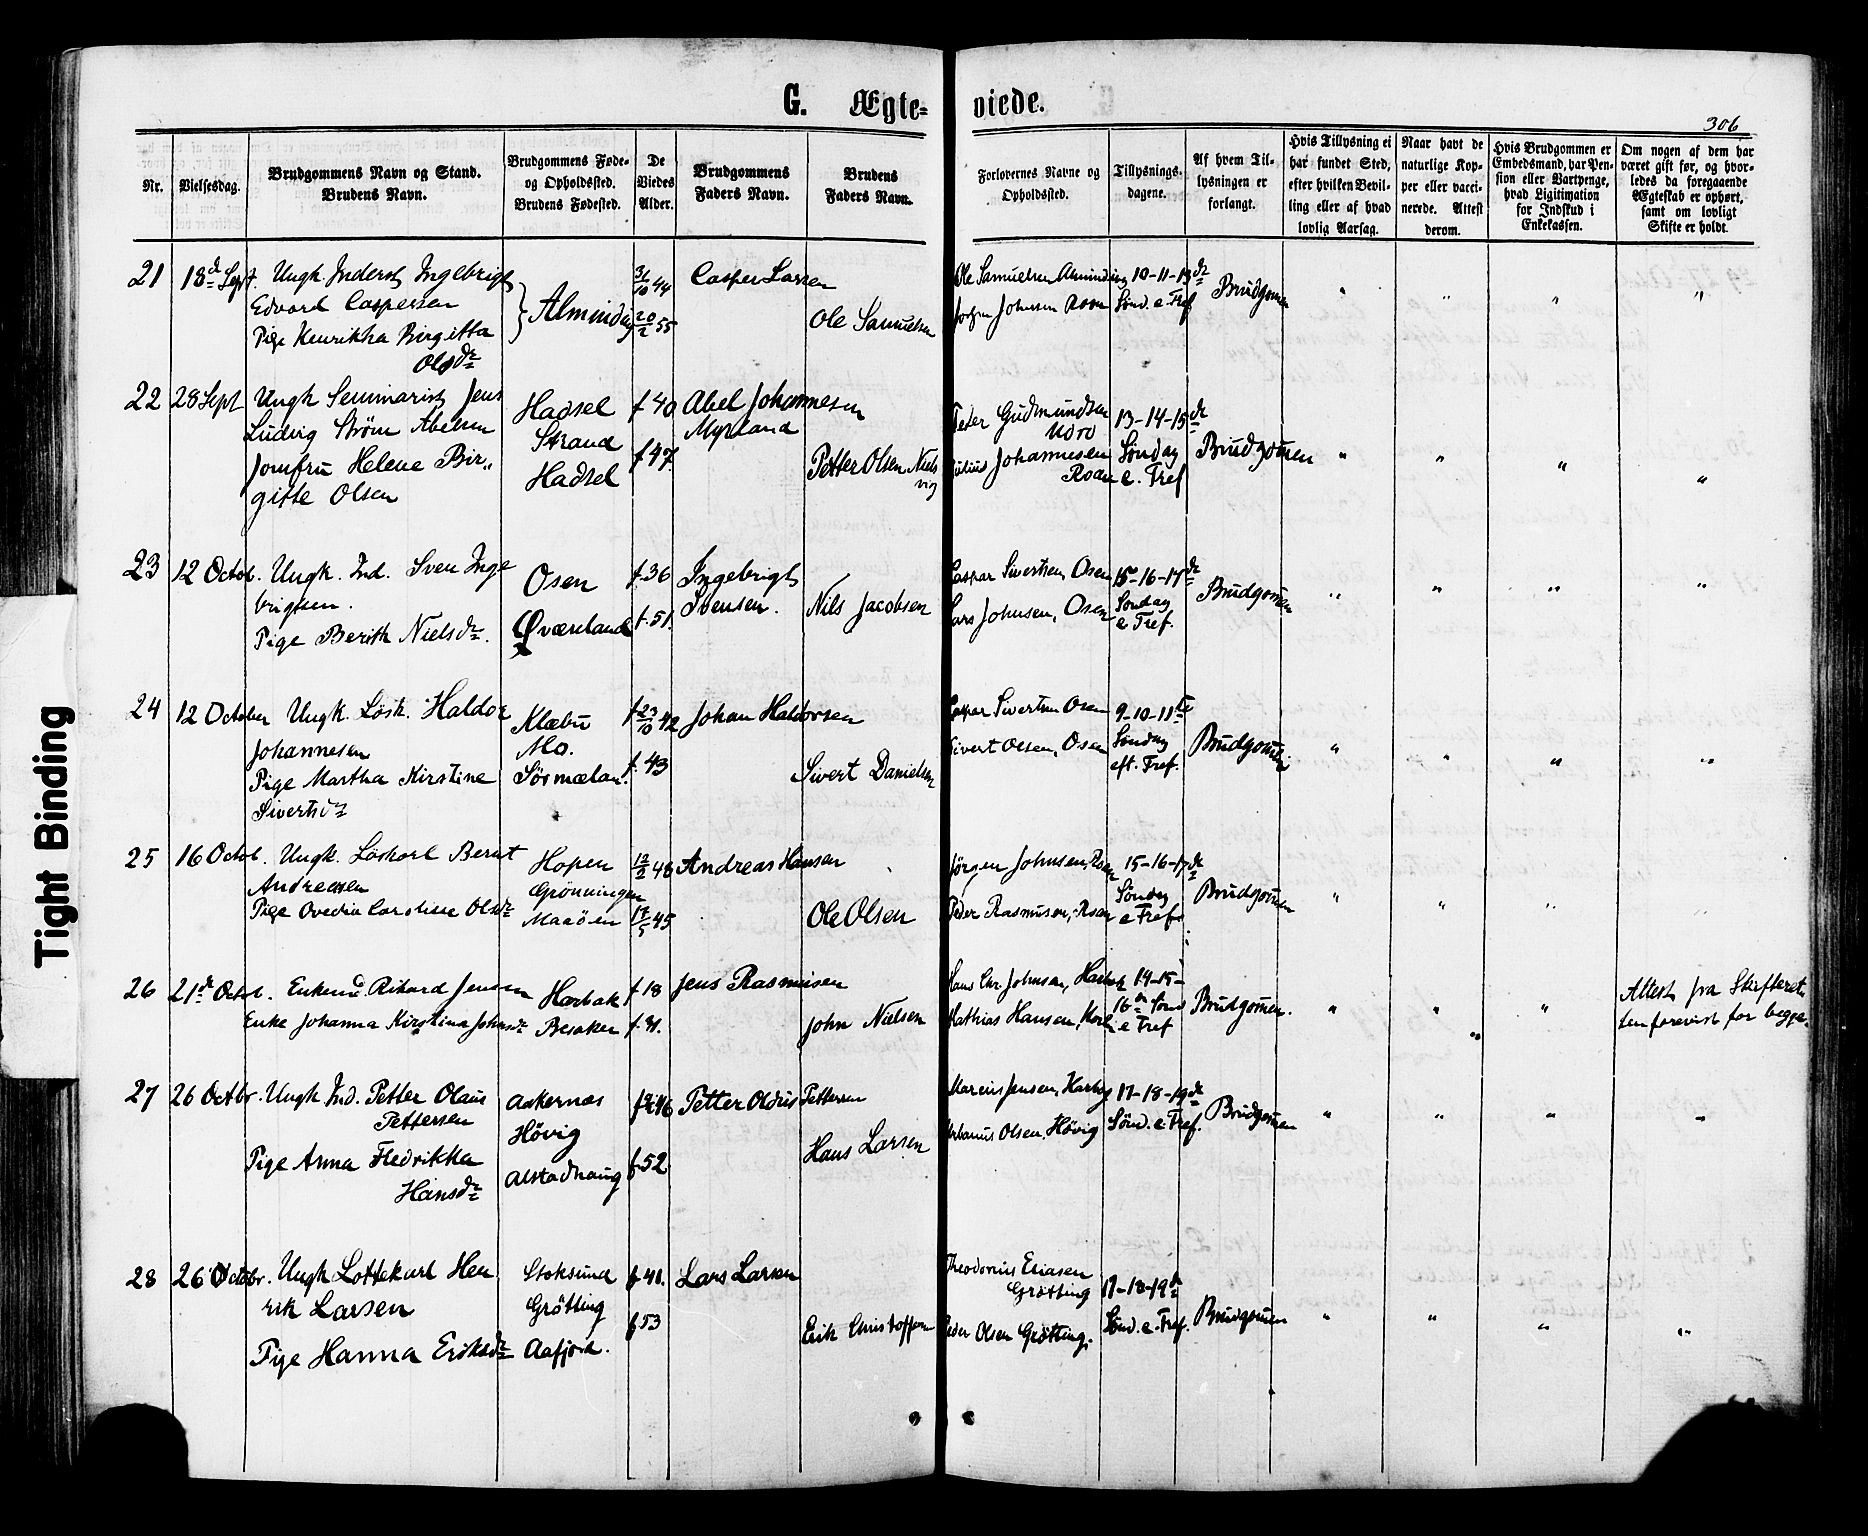 G. Ægte-
viede.
306
Nr.
Vielsesdag.
Brudgommens Navn og Stand.
Brudens Navn.
Brudgommens Føde-
og Opholdssted.
Brudens Fødested.
De
Viedes
Alder.
Brudgommens
Faders Navn.
Brudens
Faders Navn.
Forlovernes Navne og
Opholdssted.
Tillysnings-
dagene.
Af hvem Til-
lysningen er
forlangt.
Hvis Tillysning ei
har fundet Sted,
efter hvilken Bevil-
ling eller af hvad
lovlig Aarsag.
Naar havt de
naturlige Kop-
per eller vacci-
nerede. Attest
derom.
Hvis Brudgommen er
Embedsmand, har Pen-
sion eller Vartpenge,
hvad Ligitimation
for Indskud i
Enkekassen.
Om nogen af dem har
været gift før, og hvor-
ledes da foregaaende
Ægteskab er ophørt,
samt om lovligt
Skifte er holdt.
21 18de Sept. Ungk. Inderst Ingebrigt
Edvard Caspersen
Pige Henrikka Birgitta
Olsdr
Almindg
31/10 44
20/2 55
Casper Larsen
Ole Samuelsen
Ole Samuelsen Alminding
Jørgen Johnsen Roan
10-11-13de
Sønd. e. Tref
Brudgomen
" " " "
22 28 Sept Ungk Seminarist Jens
Ludvig Strøm Abelsen
Jomfru Helene Bir„
gitte Olsen
Hadsel
Strand
Hadsel
f 40
f 47.
Abel Johannesen
Myrland
Petter Olsen Niels
vig
Peder Gudmundsen
Julius Johannesen
Roan
13-14-15de
Søndag
e. Tref
Brudgomen
" " " "
23 12 Octob. Ungk. Ind. Sven Inge
brigtsen.
Pige Berith Nielsdr.
Osen
Qværeland
f. 36
f. 51.
Ingebrigt
Svensen.
Nils Jacobsen
Caspar Sivertsen Osen
Lars Johnsen, Osen
15-16-17de
Søndag
e Tref.
Brudgomen
" " " "
24 12 October Ungk. Løsk. Haldor
Johannesen
Pige Martha Kirstine
Sivertsdr
Klæbu
Mo.
Sørmælan.
f 23/10 42
f. 43
Johan Haldorsen
Sivert Danielsen
Caspar Sivertsen Osen
Sivert Olsen, Osen
9-10-11te
Søndag
eft. Tref.
Brudgomen
" " " "
25 16 Octob. Ungk. Løskarl Bernt
Andreasen
Pige Ovedia Caroline Olsdr
Hopen
Grønningen
Maaøen
12/2 48
17/5 45
Andreas Hansen
Ole Olsen
Jørgen Johnsen, Roan
Peder Rasmusen, Roan
15-16-17de
Søndag
e Tref.
Brudgomen
" " " "
26 21de Octob. Enkemd. Rikard Jensen
Enke Johanna Kirstina Johnsdr
Harbak
Besaker
f 18
Jens Rasmusen
John Nielsen
Hans Chr. Johnsen, Harbak
Mathias Hansen,
14-15-
16de Sønd
e Tref
Brudgomen.
" " "
Attest fra Skifteret
ten forevist for begge.
27 26 Octbr. Ungk Ind. Petter Olaus
Pettersen
Pige Anna Fredrikka
Hansdr
Aakernas
Høvig
Alstadhaug
f 52
Petter Olaus Pettersen
Hans Larsen
Marcius Jensen, Harbag
Urbanus Olsen, Høvig
17-18-19de
Sønd. e. Tref.
Brudgomen
" " " "
28 26 Octobr. Ungk Lottekarl Hen
rik Larsen
Pige Hanna Eriksdr
Stoksund
Grøtting
Aafjord.
f 41.
f 53
Lars Larsen
Erik Christoffersen
Theodorius Eliasen
Grøtting
Peder Olsen Grøtting.
17-18-19de
Sønd. e. Tref.
Brudgomen
" " " "
Tight Binding